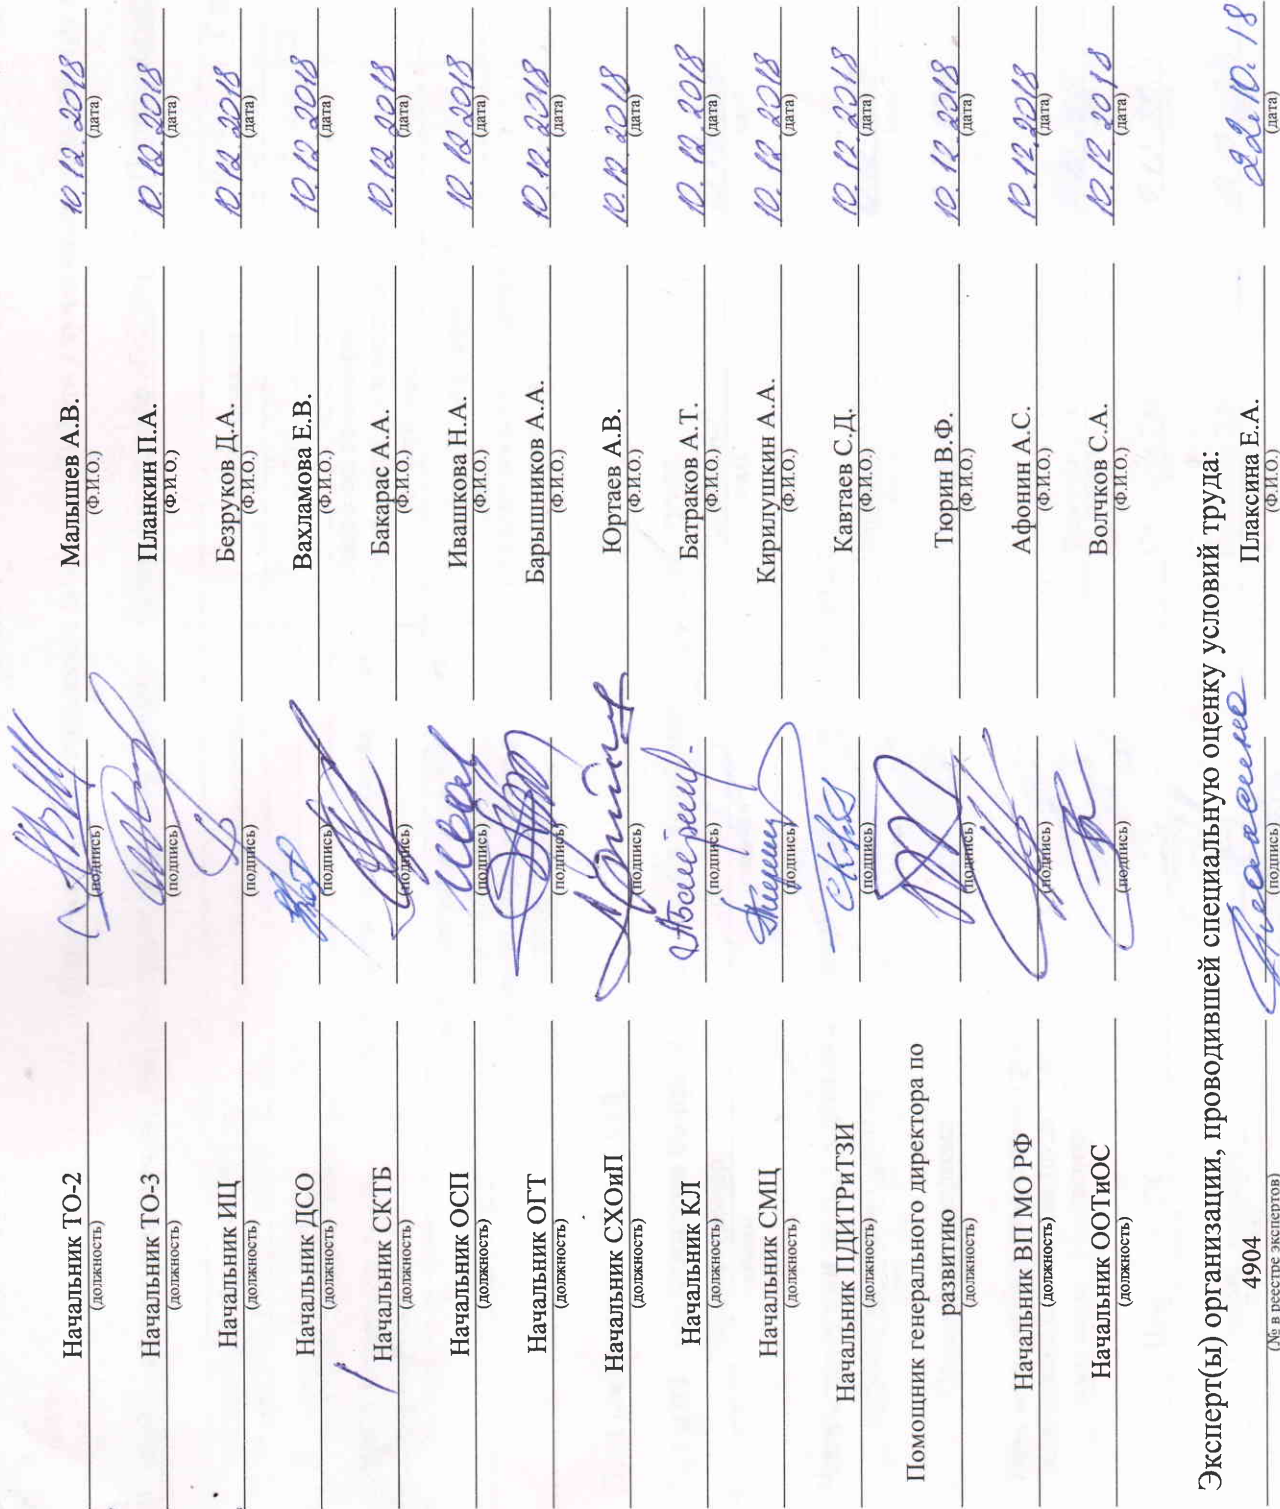 Начальник ТО-2 Малышев А.В. 10.12.2018
(должность) (подпись) (Ф.И.О.) (дата)
Начальник ТО-3 Планкин П.А. 10.12.2018
(должность) (подпись) (Ф.И.О.) (дата)
Начальник ИЦ Безруков Д.А. 10.12.2018
(должность) (подпись) (Ф.И.О.) (дата)
Начальник ДСО Вахламова Е.В. 10.12.2018
(должность) (подпись) (Ф.И.О.) (дата)
Начальник СКТБ Бакарас А.А. 10.12.2018
(должность) (подпись) (Ф.И.О.) (дата)
Начальник ОСП Ивашкова Н.А. 10.12.2018
(должность) (подпись) (Ф.И.О.) (дата)
Начальник ОГТ Барышников А.А. 10.12.2018
(должность) (подпись) (Ф.И.О.) (дата)
Начальник СХОиП Юртаев А.В. 10.12.2018
(должность) (подпись) (Ф.И.О.) (дата)
Начальник КЛ Батраков А.Т. 10.12.2018
(должность) (подпись) (Ф.И.О.) (дата)
Начальник СМЦ Кирилушкин А.А. 10.12.2018
(должность) (подпись) (Ф.И.О.) (дата)
Начальник ПДИТРиТЗИ Кавтаев С.Д. 10.12.2018
(должность) (подпись) (Ф.И.О.) (дата)
Помощник генерального директора по
развитию Тюрин В.Ф. 10.12.2018
(должность) (подпись) (Ф.И.О.) (дата)
Начальник ВП МО РФ Афонин А.С. 10.12.2018
(должность) (подпись) (Ф.И.О.) (дата)
Начальник ООТиОС Волчков С.А. 10.12.2018
(должность) (подпись) (Ф.И.О.) (дата)
Эксперт(ы) организации, проводившей специальную оценку условий труда:
4904 Плаксина Е.А. 22.10.18
(№ в реестре экспертов) (подпись) (Ф.И.О.) (дата)